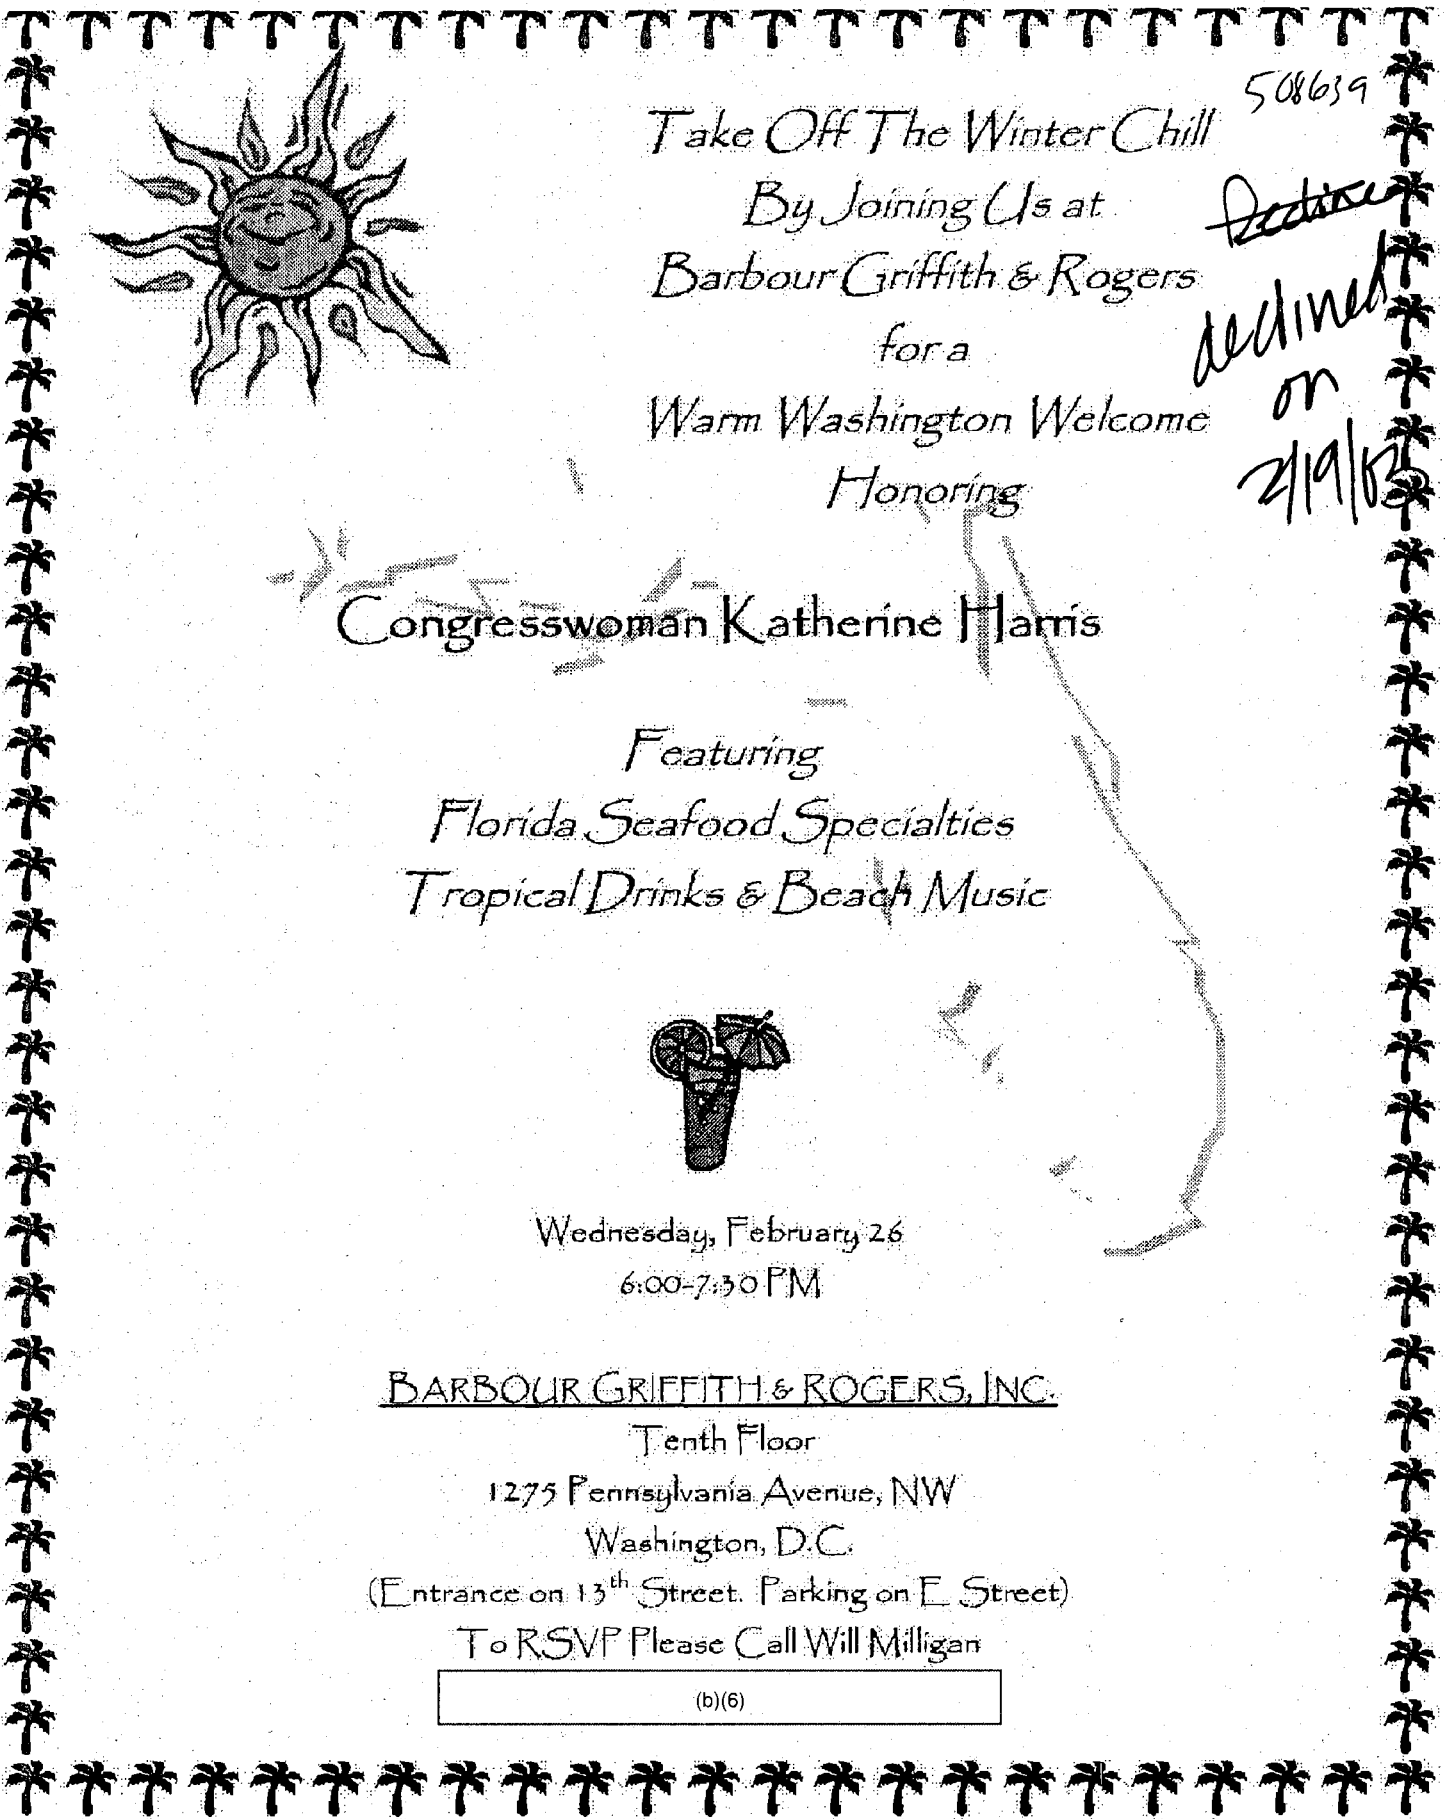 508639
Take Off The Winter Chill
By Joining Us at
Decline
Barbour Griffith & Rogers
declined
for a
on
Warm Washington Welcome
2/19/03
Honoring
Congresswoman Katherine Harris
Featuring
Florida Seafood Specialties
Tropical Drinks & Beach Music
Wednesday, February 26
6:00-7:30 PM
BARBOUR GRIFFITH & ROGERS, INC.
Tenth Floor
1275 Pennsylvania Avenue, NW
Washington, D.C.
(Entrance on 13th Street. Parking on E Street)
To RSVP Please Call Will Milligan
(b)(6)